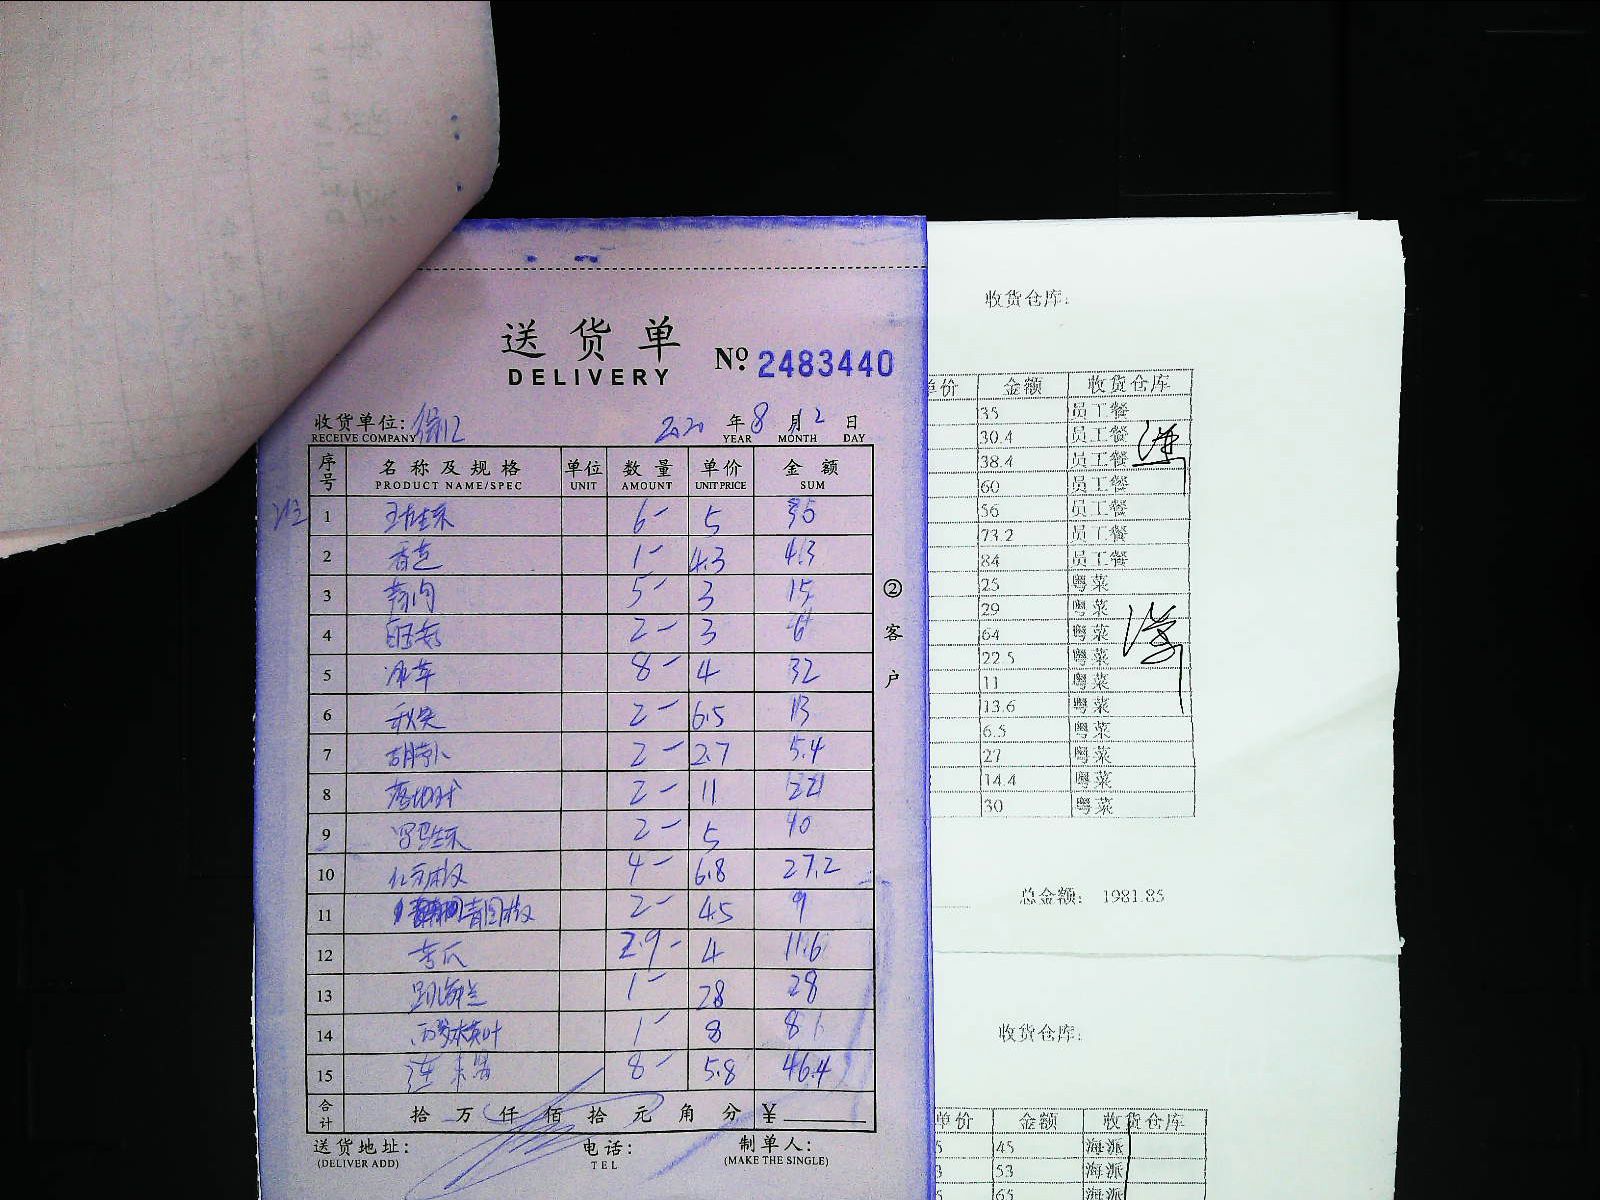 送货单
DELIVERY
№ 2483440
收货单位:
RECEIVE COMPANY
2020 年 8 月 2 日
YEAR MONTH DAY
序号 名称及规格 单位 数量 单价 金额
PRODUCT NAME/SPEC UNIT AMOUNT UNIT PRICE SUM
1 6- 5
2 1- 4.3 4.3
3 5- 3 15
4 2- 3 6
5 8- 4 32
6 2- 6.5 13
7 胡萝卜 2- 2.7 5.4
8 2- 11
9 2- 5
10 4- 6.8 27.2
11 2- 4.5 9
12 苦瓜 2.9- 4 11.6
13 1- 28 28
14 1- 8 8
15 8- 5.8 46.4
合计 拾 万 仟 佰 拾 元 角 分 ¥
送货地址: 电话: 制单人:
(DELIVER ADD) TEL (MAKE THE SINGLE)
②客户
收货仓库:
单价 金额 收货仓库
35 员工餐
30.4 员工餐
38.4 员工餐
60 员工餐
56 员工餐
73.2 员工餐
84 员工餐
25 粤菜
29 粤菜
64 粤菜
22.5 粤菜
11 粤菜
13.6 粤菜
6.5 粤菜
27 粤菜
14.4 粤菜
30 粤菜
总金额: 1981.85
收货仓库:
单价 金额 收货仓库
45 海派
53 海派
65 海派